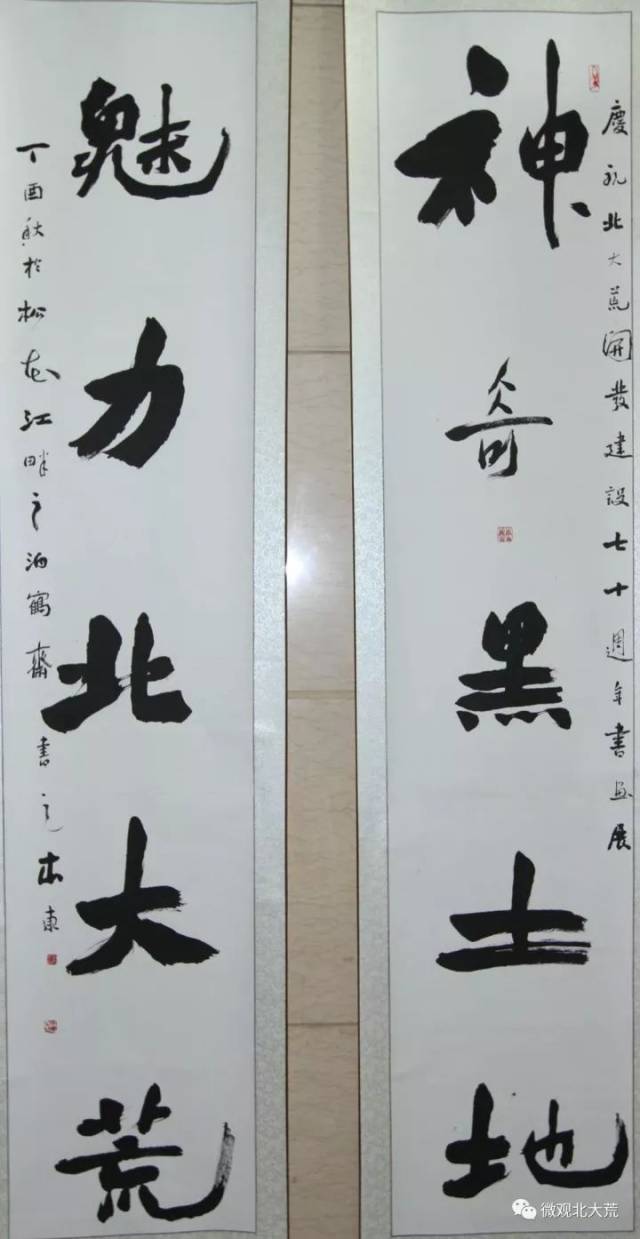 慶祝北大荒開發建設七十週年書畫展
神奇黑土地
魅力北大荒
丁酉秋於松花江畔之泊鶴齋書之
微观北大荒